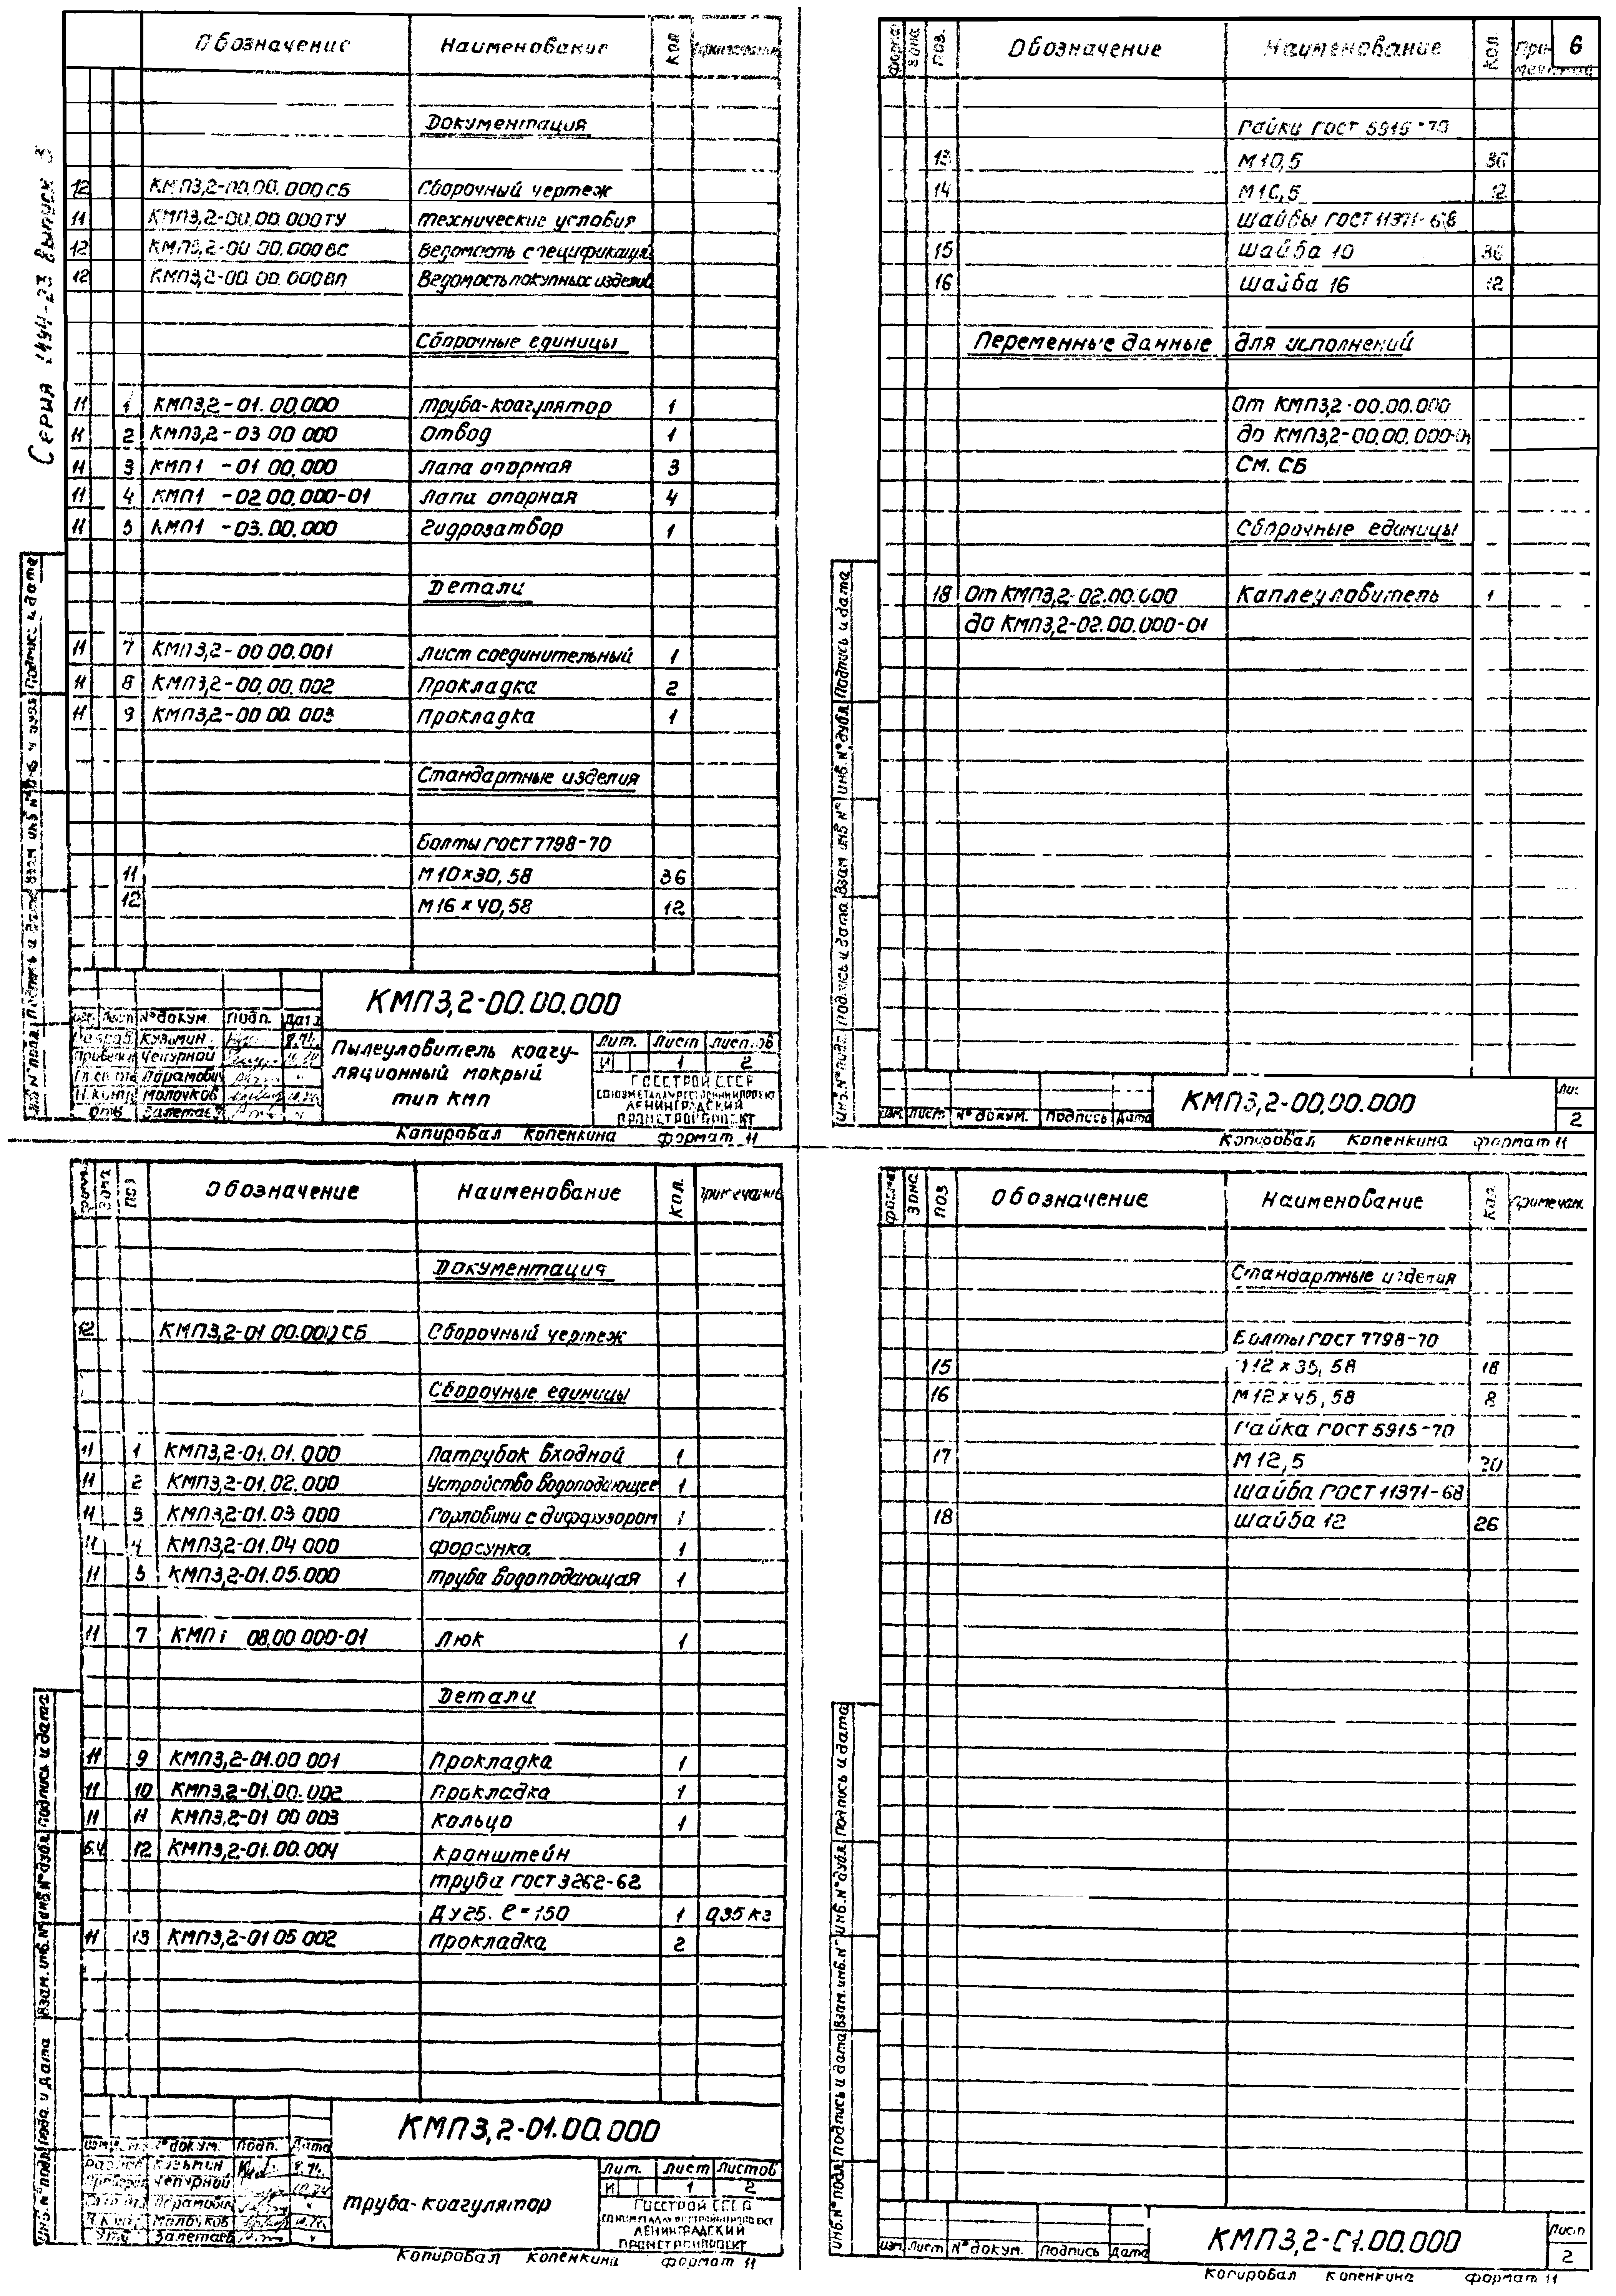 Серия 1.494-23 выпуск 3
Обозначение Наименование Кол Примечание
Документация
12 КМП3,2-00.00.000СБ Сборочный чертеж
11 КМП3,2-00.00.000ТУ технические условия
12 КМП3,2-00 00.000ВС Ведомость спецификаций
12 КМП3,2-00.00.000ВП Ведомость покупных изделий
Сборочные единицы
11 1 КМП3,2-01.00.000 труба-коагулятор 1
11 2 КМП3,2-03 00 000 Отвод 1
11 3 КМП1 -01 00.000 лапа опорная 3
11 4 КМП1 -02.00.000-01 лапа опорная 4
11 5 КМП1 -03.00.000 Гидрозатвор 1
Детали
11 7 КМП3,2-00 00.001 лист соединительный 1
11 8 КМП3,2-00.00.002 Прокладка 2
11 9 КМП3,2-00 00.003 Прокладка 1
Стандартные изделия
Болты ГОСТ 7798-70
11 М10×30,58 36
12 М16×40,58 12
КМП3,2-00.00.000
Лист №докум. Подп. Дата
Кузьмин
Чепурной
Н.контр Молочков
Утв Залетаев
Пылеуловитель коагу-
ляционный мокрый
тип КМП
Лит. Лист Листов
И 1 2
ГОССТРОЙ СССР
ЛЕНИНГРАДСКИЙ
ПРОМСТРОЙПРОЕКТ
Копировал Копенкина формат 11
Инв.№подл. Подпись и дата Взам инв № Инв № дубл Подпись и дата
6
Формат Зона Поз. Обозначение Наименование Кол. Примечание
Гайки ГОСТ 5915-70
13 М10,5 36
14 М16,5 12
шайбы ГОСТ 11371-68
15 шайба 10 36
16 шайба 16 12
Переменные данные для исполнений
От КМП3,2-00.00.000
до КМП3,2-00.00.000-01
См. СБ
Сборочные единицы
18 От КМП3,2-02.00.000 Каплеуловитель 1
до КМП3,2-02.00.000-01
Изм. Лист №докум. Подпись Дата
КМП3,2-00.00.000
Лист
2
Копировал Копенкина формат 11
Инв.№подл. Подпись и дата Взам инв № Инв.№дубл. Подпись и дата
Форм. Зона Поз Обозначение Наименование Кол. Примечание
Документация
12 КМП3,2-01 00.000СБ Сборочный чертеж
Сборочные единицы
11 1 КМП3,2-01.01.000 Патрубок входной 1
11 2 КМП3,2-01.02.000 Устройство водоподающее 1
11 3 КМП3,2-01.03 000 Горловина с диффузором 1
11 4 КМП3,2-01.04 000 форсунка 1
11 5 КМП3,2-01.05.000 труба водоподающая 1
11 7 КМП1 08.00 000-01 Люк 1
Детали
11 9 КМП3,2-01.00 001 Прокладка 1
11 10 КМП3,2-01.00.002 Прокладка 1
11 11 КМП3,2-01 00 003 Кольцо 1
б.ч 12 КМП3,2-01.00.004 Кронштейн
труба ГОСТ 3262-62
Ду25. ℓ=150 1 0,35кг
11 13 КМП3,2-01 05 002 Прокладка 2
КМП3,2-01.00.000
№докум. Подп. Дата
Кузьмин
Чепурной
Молочков
Утв Залетаев
труба-коагулятор
Лит. Лист Листов
И 1 2
ГОССТРОЙ СССР
ЛЕНИНГРАДСКИЙ
ПРОМСТРОЙПРОЕКТ
Копировал Копенкина формат 11
Инв.№подл Подп. и дата Взам.инв.№ Инв.№дубл. Подпись и дата
Формат Зона Поз Обозначение Наименование Кол. Примечан.
Стандартные изделия
Болты ГОСТ 7798-70
15 М12×35,58 18
16 М12×45,58 8
Гайка ГОСТ 5915-70
17 М12,5
шайба ГОСТ 11371-68
18 шайба 12 26
Изм Лист №докум. Подпись Дата
КМП3,2-01.00.000
Лист
2
Копировал Копенкина формат 11
Инв.№подл. Подпись и дата Взам.инв.№ Инв.№дубл. Подпись и дата